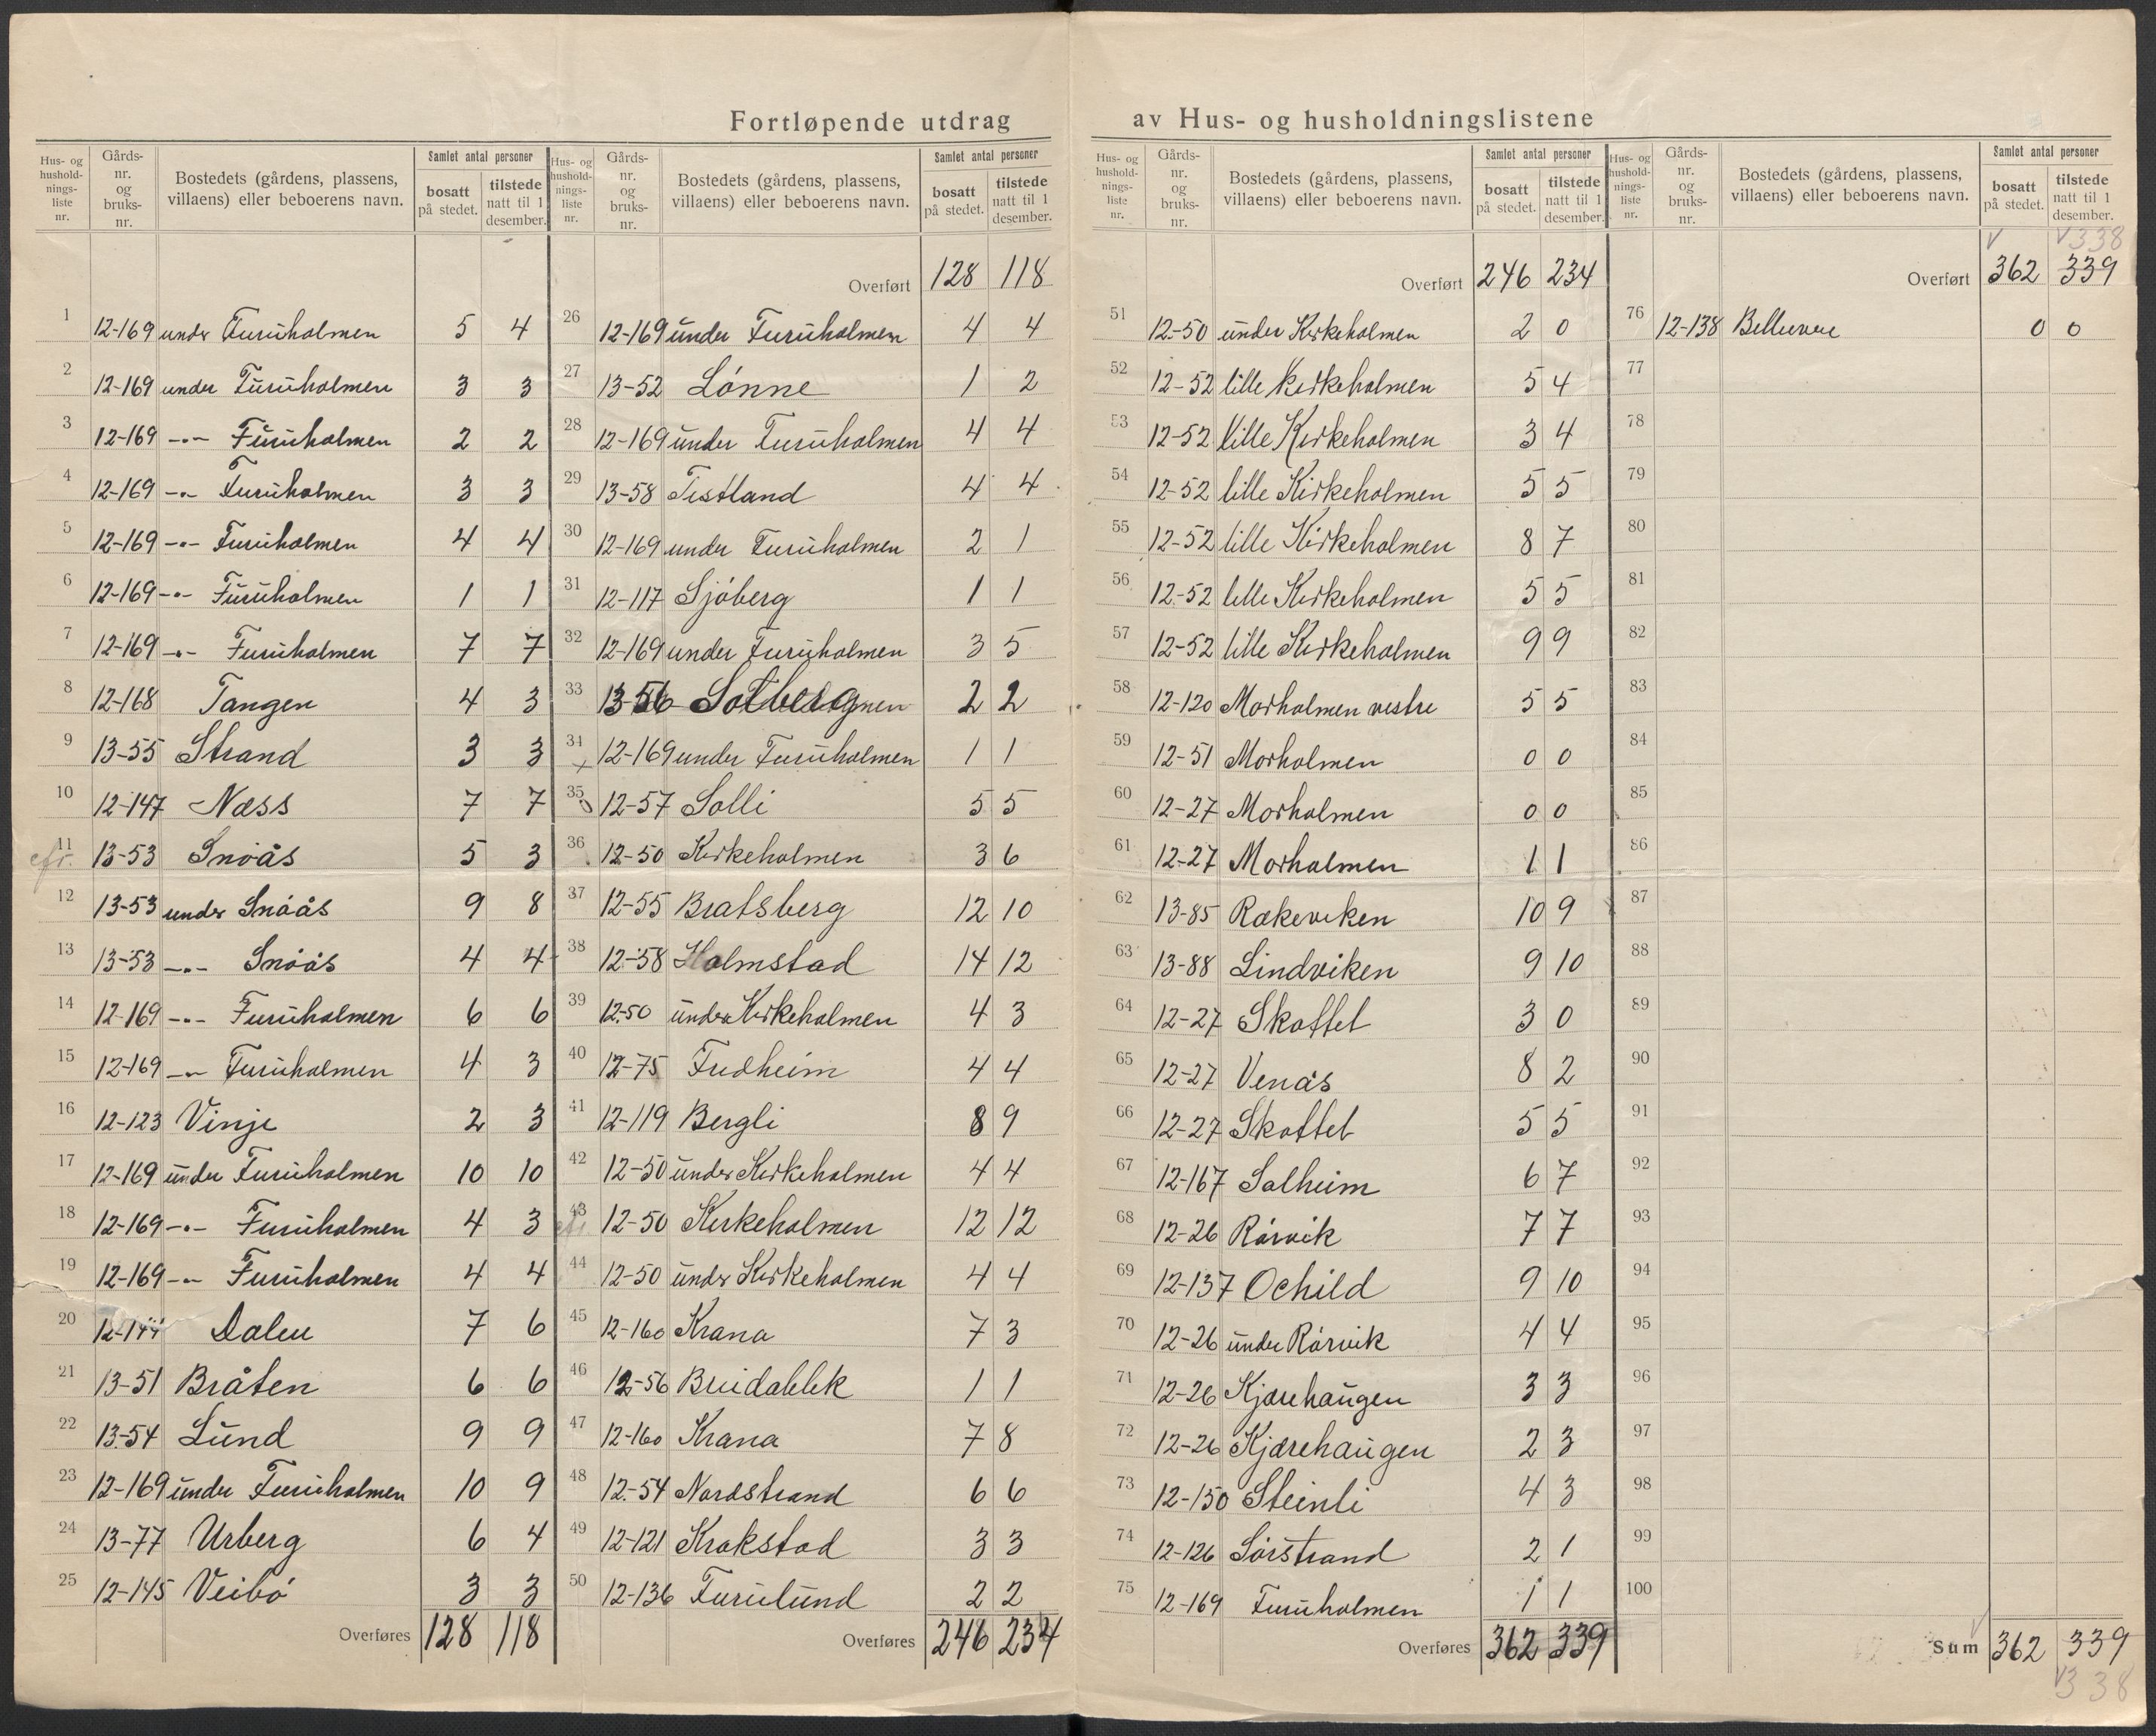 Fortløpende utdrag av Hus- og husholdningslistene
Hus- og husholdnings- liste nr. | Gårds- nr. og bruks- nr. | Bostedets (gårdens, plassens, villaens) eller beboerens navn. | Samlet antal personer | bosatt på stedet. | tilstede natt til 1 desember.
1 12-169 under Furuholmen 5 4
2 12-169 under Furuholmen 3 3
3 12-169 -"- Furuholmen 2 2
4 12-169 -"- Furuholmen 3 3
5 12-169 -"- Furuholmen 4 4
6 12-169 -"- Furuholmen 1 1
7 12-169 -"- Furuholmen 7 7
8 12-168 Tangen 4 3
9 13-55 Strand 3 3
10 12-147 Næss 7 7
11 cfr. 13-53 Snoås 5 3
12 13-53 under Snöås 9 8
13 13-53 -"- Snöås 4 4
14 12-169 -"- Furuholmen 6 6
15 12-169 -"- Furuholmen 4 3
16 12-123 Vinje 2 3
17 12-169 under Furuholmen 10 10
18 12-169 -"- Furuholmen 4 3
19 12-169 -"- Furuholmen 4 4
20 12-144 Dalen 7 6
21 13-51 Bråten 6 6
22 13-54 Lund 9 9
23 12-169 under Furuholmen 10 9
24 13-77 Urberg 6 4
25 12-145 Veibö 3 3
Overføres 128 118
Hus- og husholdnings- liste nr. | Gårds- nr. og bruks- nr. | Bostedets (gårdens, plassens, villaens) eller beboerens navn. | Samlet antal personer | bosatt på stedet. | tilstede natt til 1 desember.
Overført 128 118
26 12-169 under Furuholmen 4 4
27 13-52 Lönne 1 2
28 12-169 under Furuholmen 4 4
29 13-58 Tistland 4 4
30 12-169 under Furuholmen 2 1
31 12-117 Sjöberg 1 1
32 12-169 under Furuholmen 3 5
33 13-56 Solberg 2 2
34 12-169 under Furuholmen 1 1
35 12-57 Solli 5 5
36 12-50 Kirkeholmen 3 6
37 12-55 Bratsberg 12 10
38 12-58 Holmstad 14 12
39 12-50 under Kirkeholmen 4 3
40 12-75 Fredheim 4 4
41 12-119 Bergli 8 9
42 12-50 under Kirkeholmen 4 4
43 cfr. 12-50 Kirkeholmen 12 12
44 12-50 under Kirkeholmen 4 4
45 12-160 Krana 7 3
46 12-56 1 1
47 12-160 Krana 7 8
48 12-54 Nordstrand 6 6
49 12-121 Krokstad 3 3
50 12-136 Furulund 2 2
Overføres 246 234
Hus- og husholdnings- liste nr. | Gårds- nr. og bruks- nr. | Bostedets (gårdens, plassens, villaens) eller beboerens navn. | Samlet antal personer | bosatt på stedet. | tilstede natt til 1 desember.
Overført 246 234
51 12-50 under Kirkeholmen 2 0
52 12-52 lille Kirkeholmen 5 4
53 12-52 lille Kirkeholmen 3 4
54 12-52 lille Kirkeholmen 5 5
55 12-52 lille Kirkeholmen 8 7
56 12-52 lille Kirkeholmen 5 5
57 12-52 lille Kirkeholmen 9 9
58 12-120 Morholmen vestre 5 5
59 12-51 Morholmen 0 0
60 12-27 Morholmen 0 0
61 12-27 Morholmen 1 1
62 13-85 Rakeviken 10 9
63 13-88 Lindviken 9 10
64 12-27 Skottet 3 0
65 12-27 Venås 8 2
66 12-27 Skottet 5 5
67 12-167 Solheim 6 7
68 12-26 Rörvik 7 7
69 12-137 Ochild 9 10
70 12-26 under Rörvik 4 4
71 12-26 Kjærehaugen 3 3
72 12-26 Kjærehaugen 2 3
73 12-150 Steinli 4 3
74 12-126 Sörstrand 2 1
75 12-169 Furuholmen 1 1
Overføres 362 339
Hus- og husholdnings- liste nr. | Gårds- nr. og bruks- nr. | Bostedets (gårdens, plassens, villaens) eller beboerens navn. | Samlet antal personer | bosatt på stedet. | tilstede natt til 1 desember.
V V 338
Overført 362 339
76 12-138 Bellevue 0 0
77
78
79
80
81
82
83
84
85
86
87
88
89
90
91
92
93
94
95
96
97
98
99
100
Sum 362 339
V338